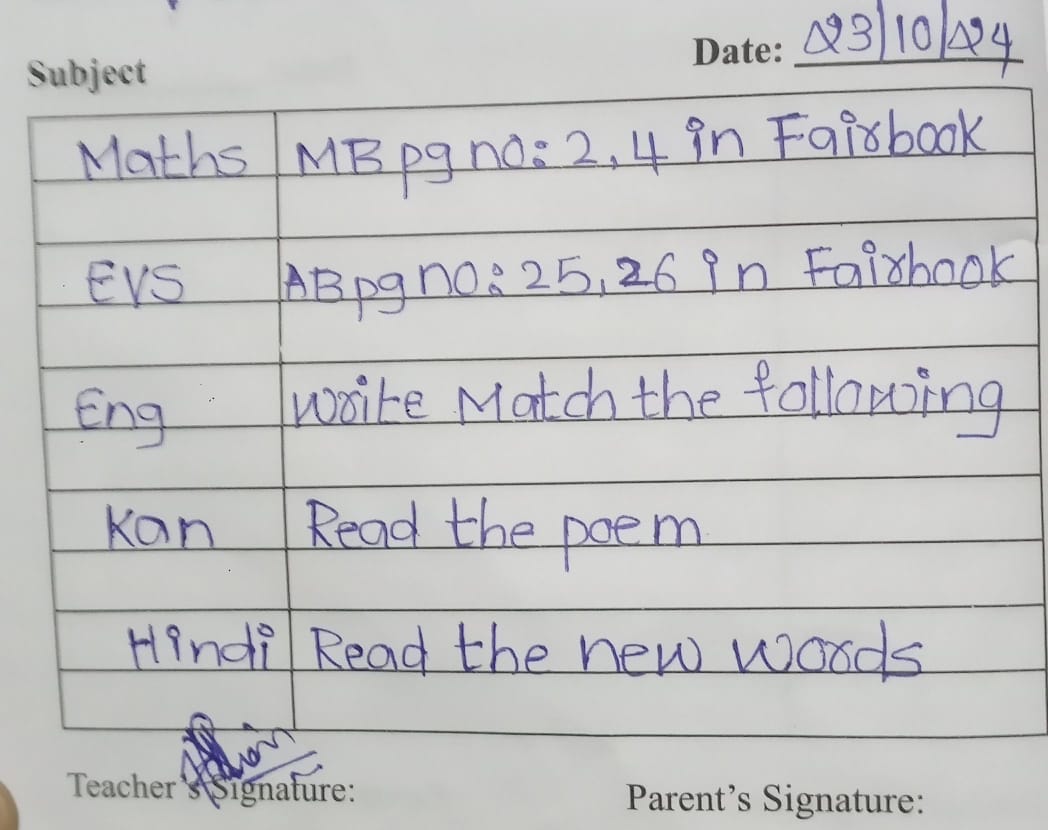 Date: 23/10/24
Subject
Maths MB pg no: 2, 4 in Fairbook
EVS AB pg no: 25, 26 in Fairbook
Eng Write Match the following
Kan Read the poem
Hindi Read the new words
Teacher's Signature:
Parent's Signature: